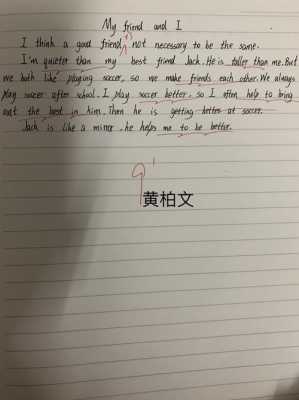 My friend and I
I think a good friend is not necessary to be the same.
I'm quieter than my best friend Jack. He is taller than me. But
we both like playing soccer, so we make friends each other. We always
play soccer after school. I play soccer better, so I often help to bring
out the best in him. Then he is getting better at soccer.
Jack is like a mirror, he helps me to be better.
9'
黄柏文